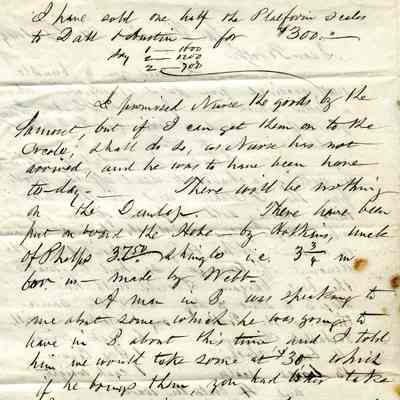 I have sold one half the Platform Scales
to Datt & Austin - for $300.-
Say 1 - 1600
2 - 1200
2 - 900
I promised Nurse the goods by the
Lamont, but if I can get them on to the
Creole, shall do so, as Nurse has not
arrived, and he was to have been here
to-day. - There will be nothing
on the Dunlop. There have been
put on board the Hope - by Watkins, uncle
of Phelps 3.750 shingles i.e. 3 3/4 m
made by Webb -
A man in B. was speaking to
me about some, which he was going to
have in B. about this time and I told
him we would take some at $30 which
if he brings them, you had take